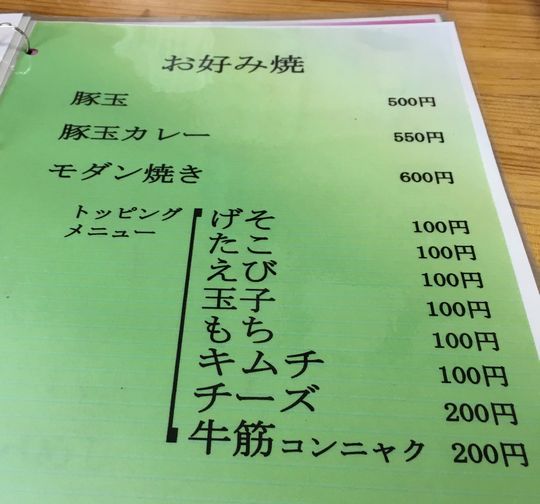 お好み焼
豚玉 500円
豚玉カレー 550円
モダン焼き 600円
トッピング
メニュー
げそ 100円
たこ 100円
えび 100円
玉子 100円
もち 100円
キムチ 100円
チーズ 200円
牛筋コンニャク 200円